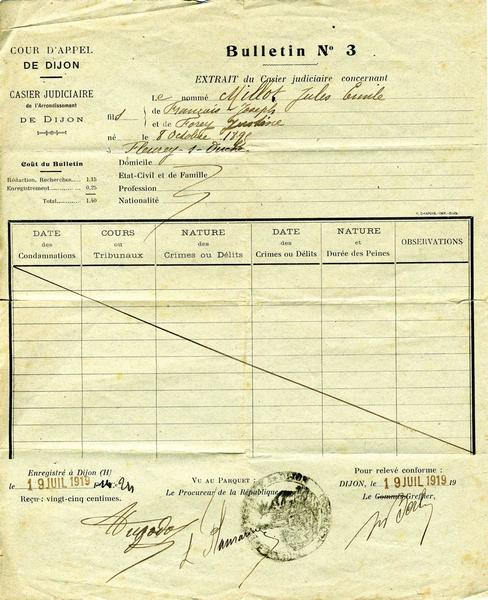 COUR D'APPEL
DE DIJON
CASIER JUDICIAIRE
de l'Arrondissement
DE DIJON
Coût du Bulletin
Rédaction, Recherches.... 1.15
Enregistrement.......... 0.25
Total...... 1.40
Bulletin Nº 3
EXTRAIT du Casier judiciaire concernant
Le nommé Millot Jules Emile
fils de François Joseph
et de Forey
né le 8 Octobre
à Fleurey-s-Ouche
Domicile
Etat-Civil et de Famille
Profession
Nationalité
DATE des Condamnations
COURS ou Tribunaux
NATURE des Crimes ou Délits
DATE des Crimes ou Délits
NATURE et Durée des Peines
OBSERVATIONS
Enregistré à Dijon (H)
le 19 JUIL 1919
Reçu : vingt-cinq centimes.
VU AU PARQUET :
Le Procureur de la République
Pour relevé conforme :
DIJON, le 19 JUIL 1919 19
Le Commis-Greffier,